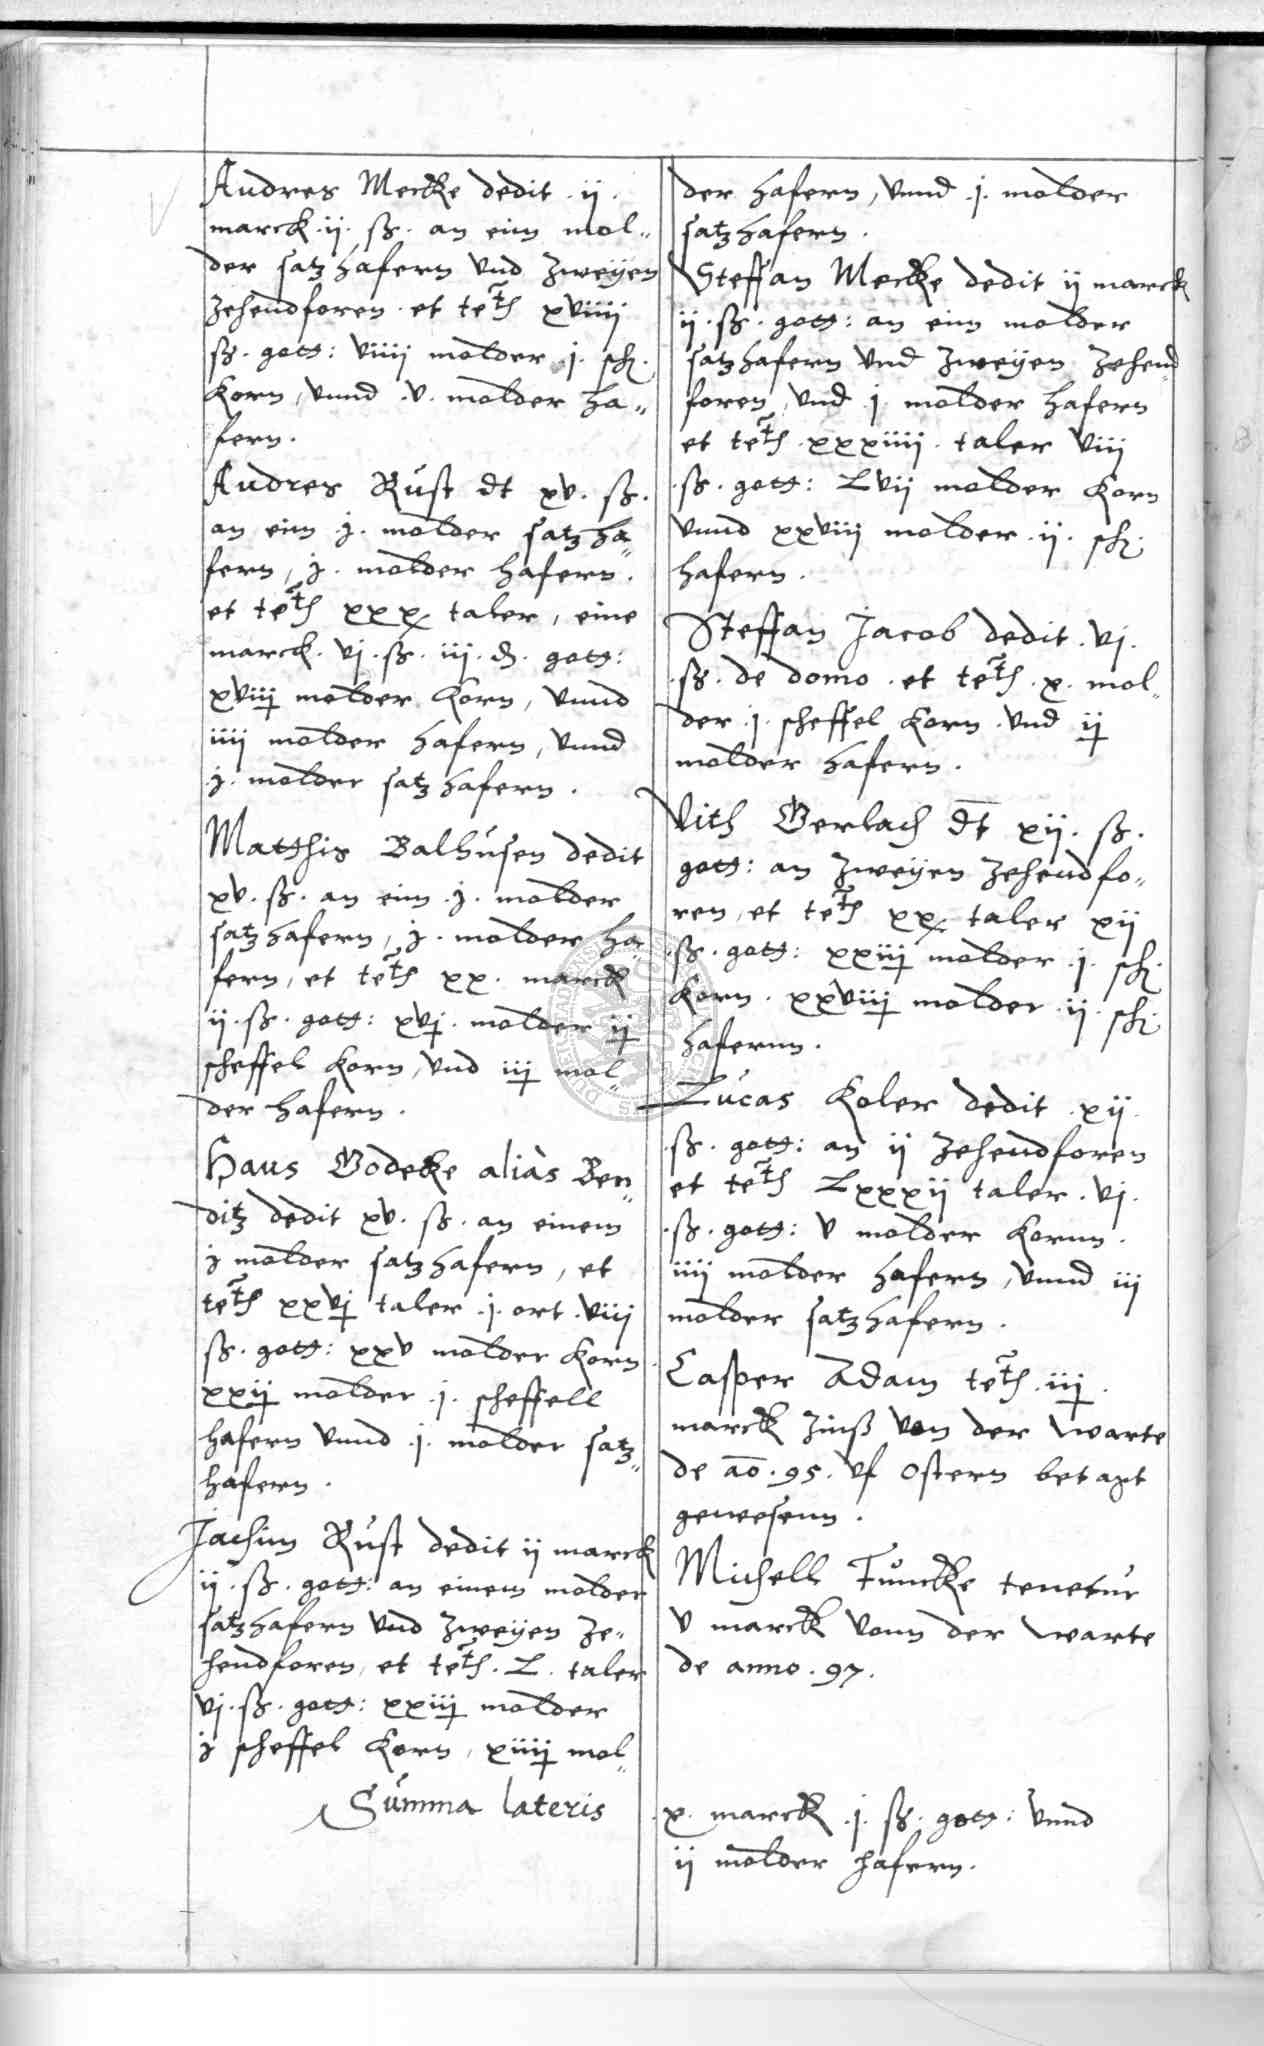 Andres Mecke dedit .ij.
marck .ij. ß. an eim mol„
der satzhafern vnd zweyen
zehendforen . et te͠th xviiij
ß. gott: viiij molder j. sch.
Korn, vnnd .v. molder ha„
fern.
Andres Rust dt xv. ß.
an eim .j. molder satzha„
fern, j. molder hafern.
et te͠th xxx taler, eine
marck. vj. ß. iij. d. gott:
xviij molder Korn, vnnd
iiij molder hafern, vnnd
j. molder satzhafern.
Matthis Balhusen dedit
xv. ß. an eim .j. molder
satzhafern, j. molder ha„
fern, et te͠th xx. marck
ij. ß. gott: xvj. molder ij
scheffel Korn, vnd iij mol„
der hafern.
Hans Godecke alias Ben„
ditz dedit xv. ß. an einem
j molder satzhafern, et
te͠th xxvj taler .j. ort viij
ß. gott: xxv molder Korn
xxij molder .j. scheffell
hafern vnnd .j. molder satz„
hafern.
Jachim Rust dedit ij marck
ij. ß. gott: an einem molder
satzhafern vnd zweyen ze„
hendforen, et te͠th. L. taler
vj. ß. gott: xxiij molder
j scheffel Korn, xiiij mol„
der hafern, vnnd .j. molder
satzhafern.
Steffan Mecke dedit ij marck
ij. ß. gott: an eim molder
satzhafern vnd zweyen zehend„
foren, vnd .j. molder hafern
et te͠th .xxxiiij. taler viij
.ß. gott: Lvij molder Korn
vnnd xxviij molder .ij. sch.
hafern.
Steffan Jacob dedit .vj.
.ß. de domo . et te͠th .x. mol„
der .j. scheffel Korn vnd ij
molder hafern.
Vith Gerlach dt xij. ß.
gott: an zweyen zehendfo„
ren, et te͠th xx taler xij
.ß. gott: xxiij molder .j. sch.
Korn . xxviij molder .ij. sch.
hafernn.
Lucas Koler dedit .xij.
.ß. gott: an ij zehendforen
et te͠th Lxxxij taler .vj.
.ß. gott: v molder Kornn.
iiij molder hafern, vnnd iij
molder satzhafern.
Casper Adam te͠th .iij.
marck zinß von der warte
de ao. 95. vf Ostern betagt
gewesenn.
Michell Tuncke tenetur
v marck vonn der warte
de anno . 97.
Summa lateris
.x. marck .j. ß. gott: vnnd
ij molder hafern.